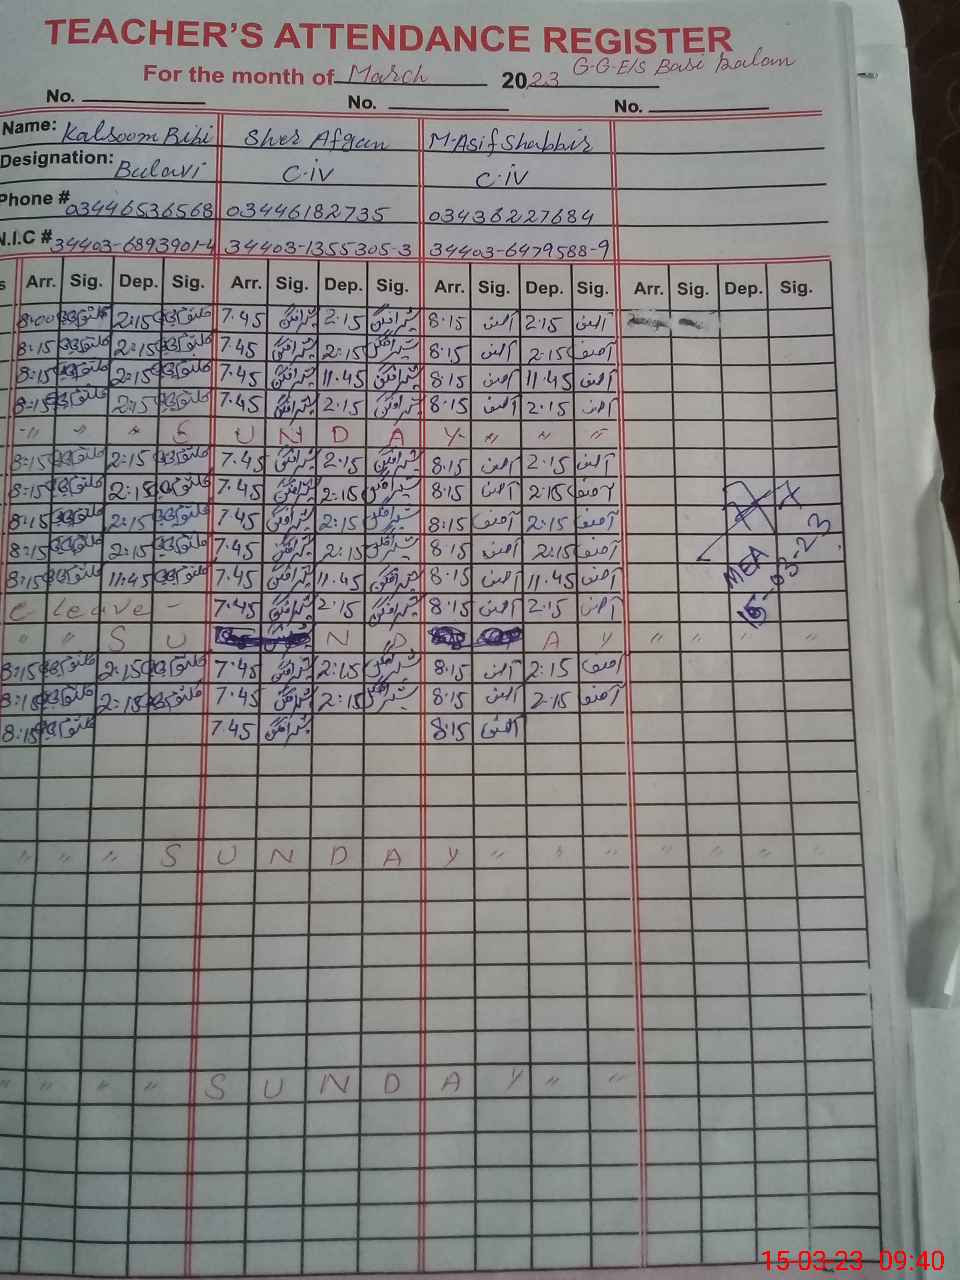 TEACHER'S ATTENDANCE REGISTER
For the month of March 2023 G.G.E/S Basi kalan
No. No. No.
Name: Kalsoom Bibi Sher Afgan M.Asif Shabbir
Designation: Bulavi C.iv C.iv
Phone # 03446536568 03446182735 03436227684
N.I.C # 34403-6893901-4 34403-1355305-3 34403-6479588-9
s Arr. Sig. Dep. Sig. Arr. Sig. Dep. Sig. Arr. Sig. Dep. Sig. Arr. Sig. Dep. Sig.
8:00 2:15 7.45 شیرافگن 2:15 شیرافگن 8:15 آصف 2:15 آصف
8:15 2:15 7.45 شیرافگن 2:15 شیرافگن 8:15 آصف 2:15 آصف
8:15 2:15 7.45 شیرافگن 11.45 شیرافگن 8:15 آصف 11.45 آصف
8:15 2:15 7.45 شیرافگن 2:15 شیرافگن 8:15 آصف 2:15 آصف
" " " S U N D A Y " " "
8:15 2:15 7.45 شیرافگن 2:15 شیرافگن 8:15 آصف 2:15 آصف
8:15 2:15 7.45 شیرافگن 2:15 شیرافگن 8:15 آصف 2:15 آصف
8:15 2:15 7.45 شیرافگن 2:15 شیرافگن 8:15 آصف 2:15 آصف
8:15 2:15 7.45 شیرافگن 2:15 شیرافگن 8:15 آصف 2:15 آصف
8:15 11:45 7.45 شیرافگن 11.45 شیرافگن 8:15 آصف 11.45 آصف
MEA
15-03-23
C leave - 7.45 شیرافگن 2:15 شیرافگن 8:15 آصف 2:15 آصف
" " S U N D A Y " " " "
8:15 2:15 7.45 شیرافگن 2:15 شیرافگن 8:15 آصف 2:15 آصف
8:15 2:15 7.45 شیرافگن 2:15 شیرافگن 8:15 آصف 2:15 آصف
8:15 7.45 شیرافگن 8:15 آصف
" " " S U N D A Y " " " " " " "
" " " " S U N D A Y " "
15-03-23 09:40